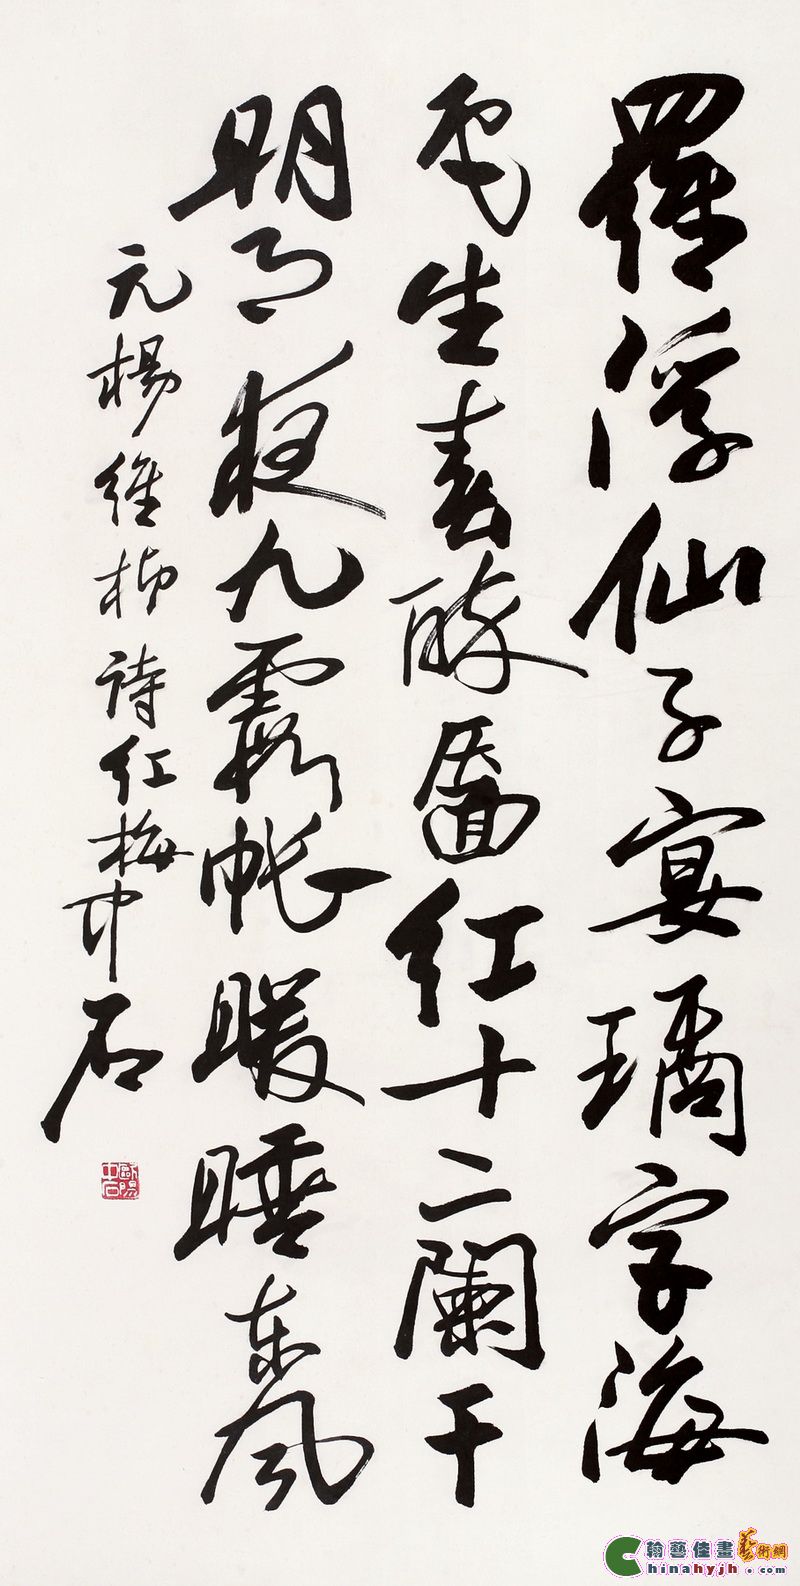 羅浮仙子宴璚宮海
色生春醉靨紅十二闌干
明月夜九霞帳暖睡東風
元楊維楨詩紅梅中石
歐陽中石
翰藝佳畫藝術網
Chinahyjh.com